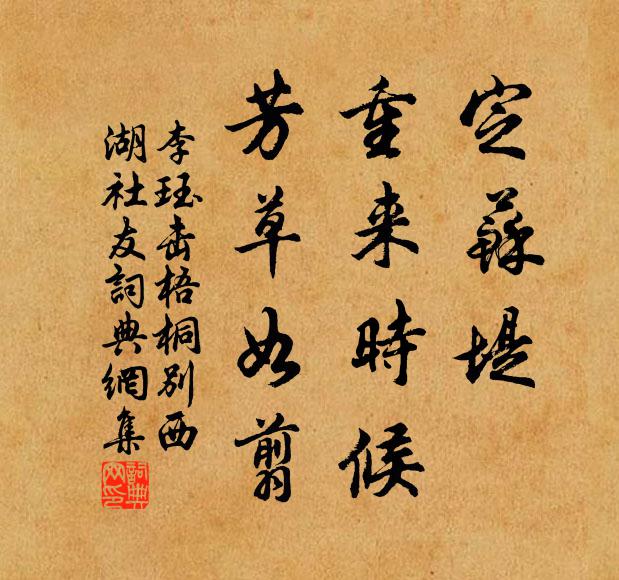 定蘇堤
重来時候
芳草如翦
李珏击梧桐别西
湖社友詞典網集
詞典网印